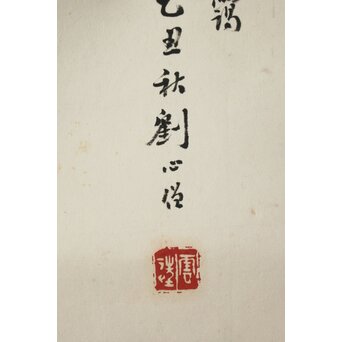 乙丑秋劉心僧